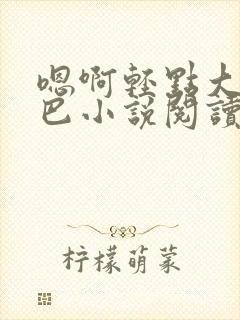 嗯啊轻點大
巴小說閱讀
柠檬萌菜